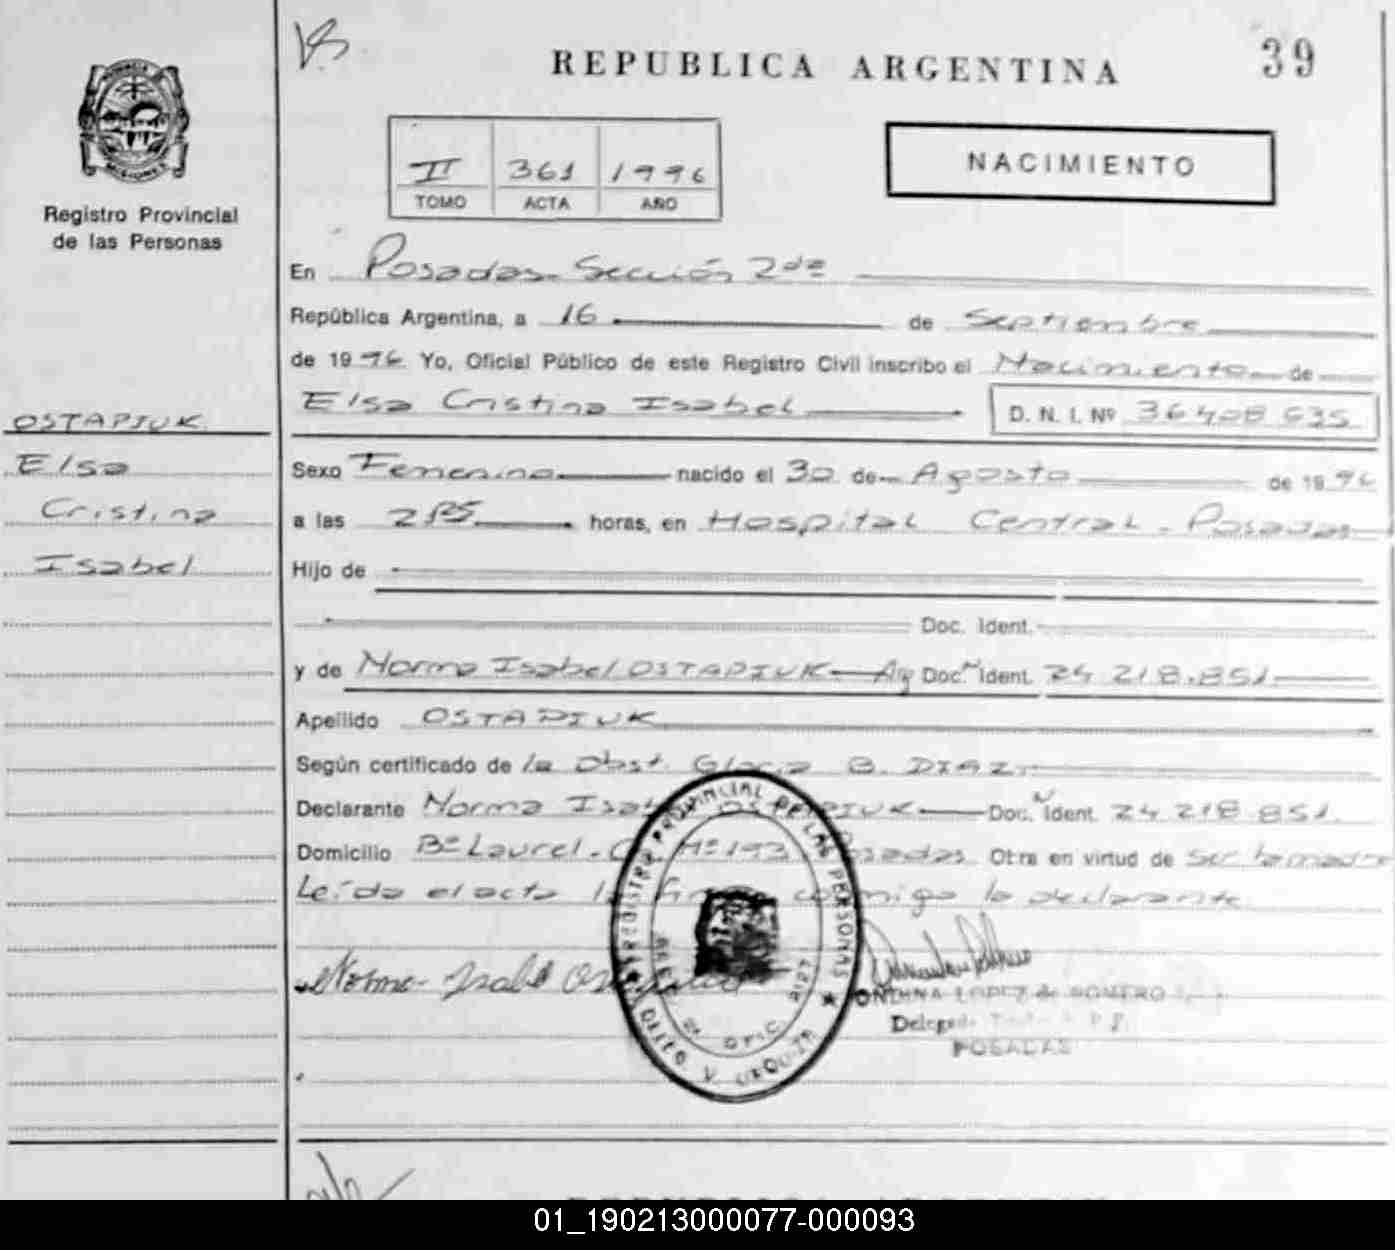 REPUBLICA ARGENTINA
39
Registro Provincial
de las Personas
II 361 1996
TOMO ACTA AÑO
NACIMIENTO
En Posadas Sección 2da
República Argentina, a 16 de Septiembre
de 1996 Yo, Oficial Público de este Registro Civil inscribo el Nacimiento de
Elsa Cristina Isabel
D. N. I. Nº 36408635
OSTAPIUK
Elsa
Cristina
Isabel
Sexo Femenino nacido el 30 de Agosto de 1996
a las horas, en Hospital Central - Posadas
Hijo de
Doc. Ident.
y de Norma Isabel OSTAPIUK Arg Doc. Ident. 24.218.851
Apellido OSTAPIUK
Según certificado de la Obst. Gloria B. DIAZ
Declarante Norma Isabel OSTAPIUK Doc. Ident. 24.218.851.
Domicilio Bº Laurel - Nº 193 Posadas Otra en virtud de ser la madre
Leída el acta la firma conmigo la declarante
Norma Isabel
REGISTRO PROVINCIAL DE LAS PERSONAS
DPTO V. URQUIZA
LOPEZ de ROMERO
POSADAS
01_190213000077-000093